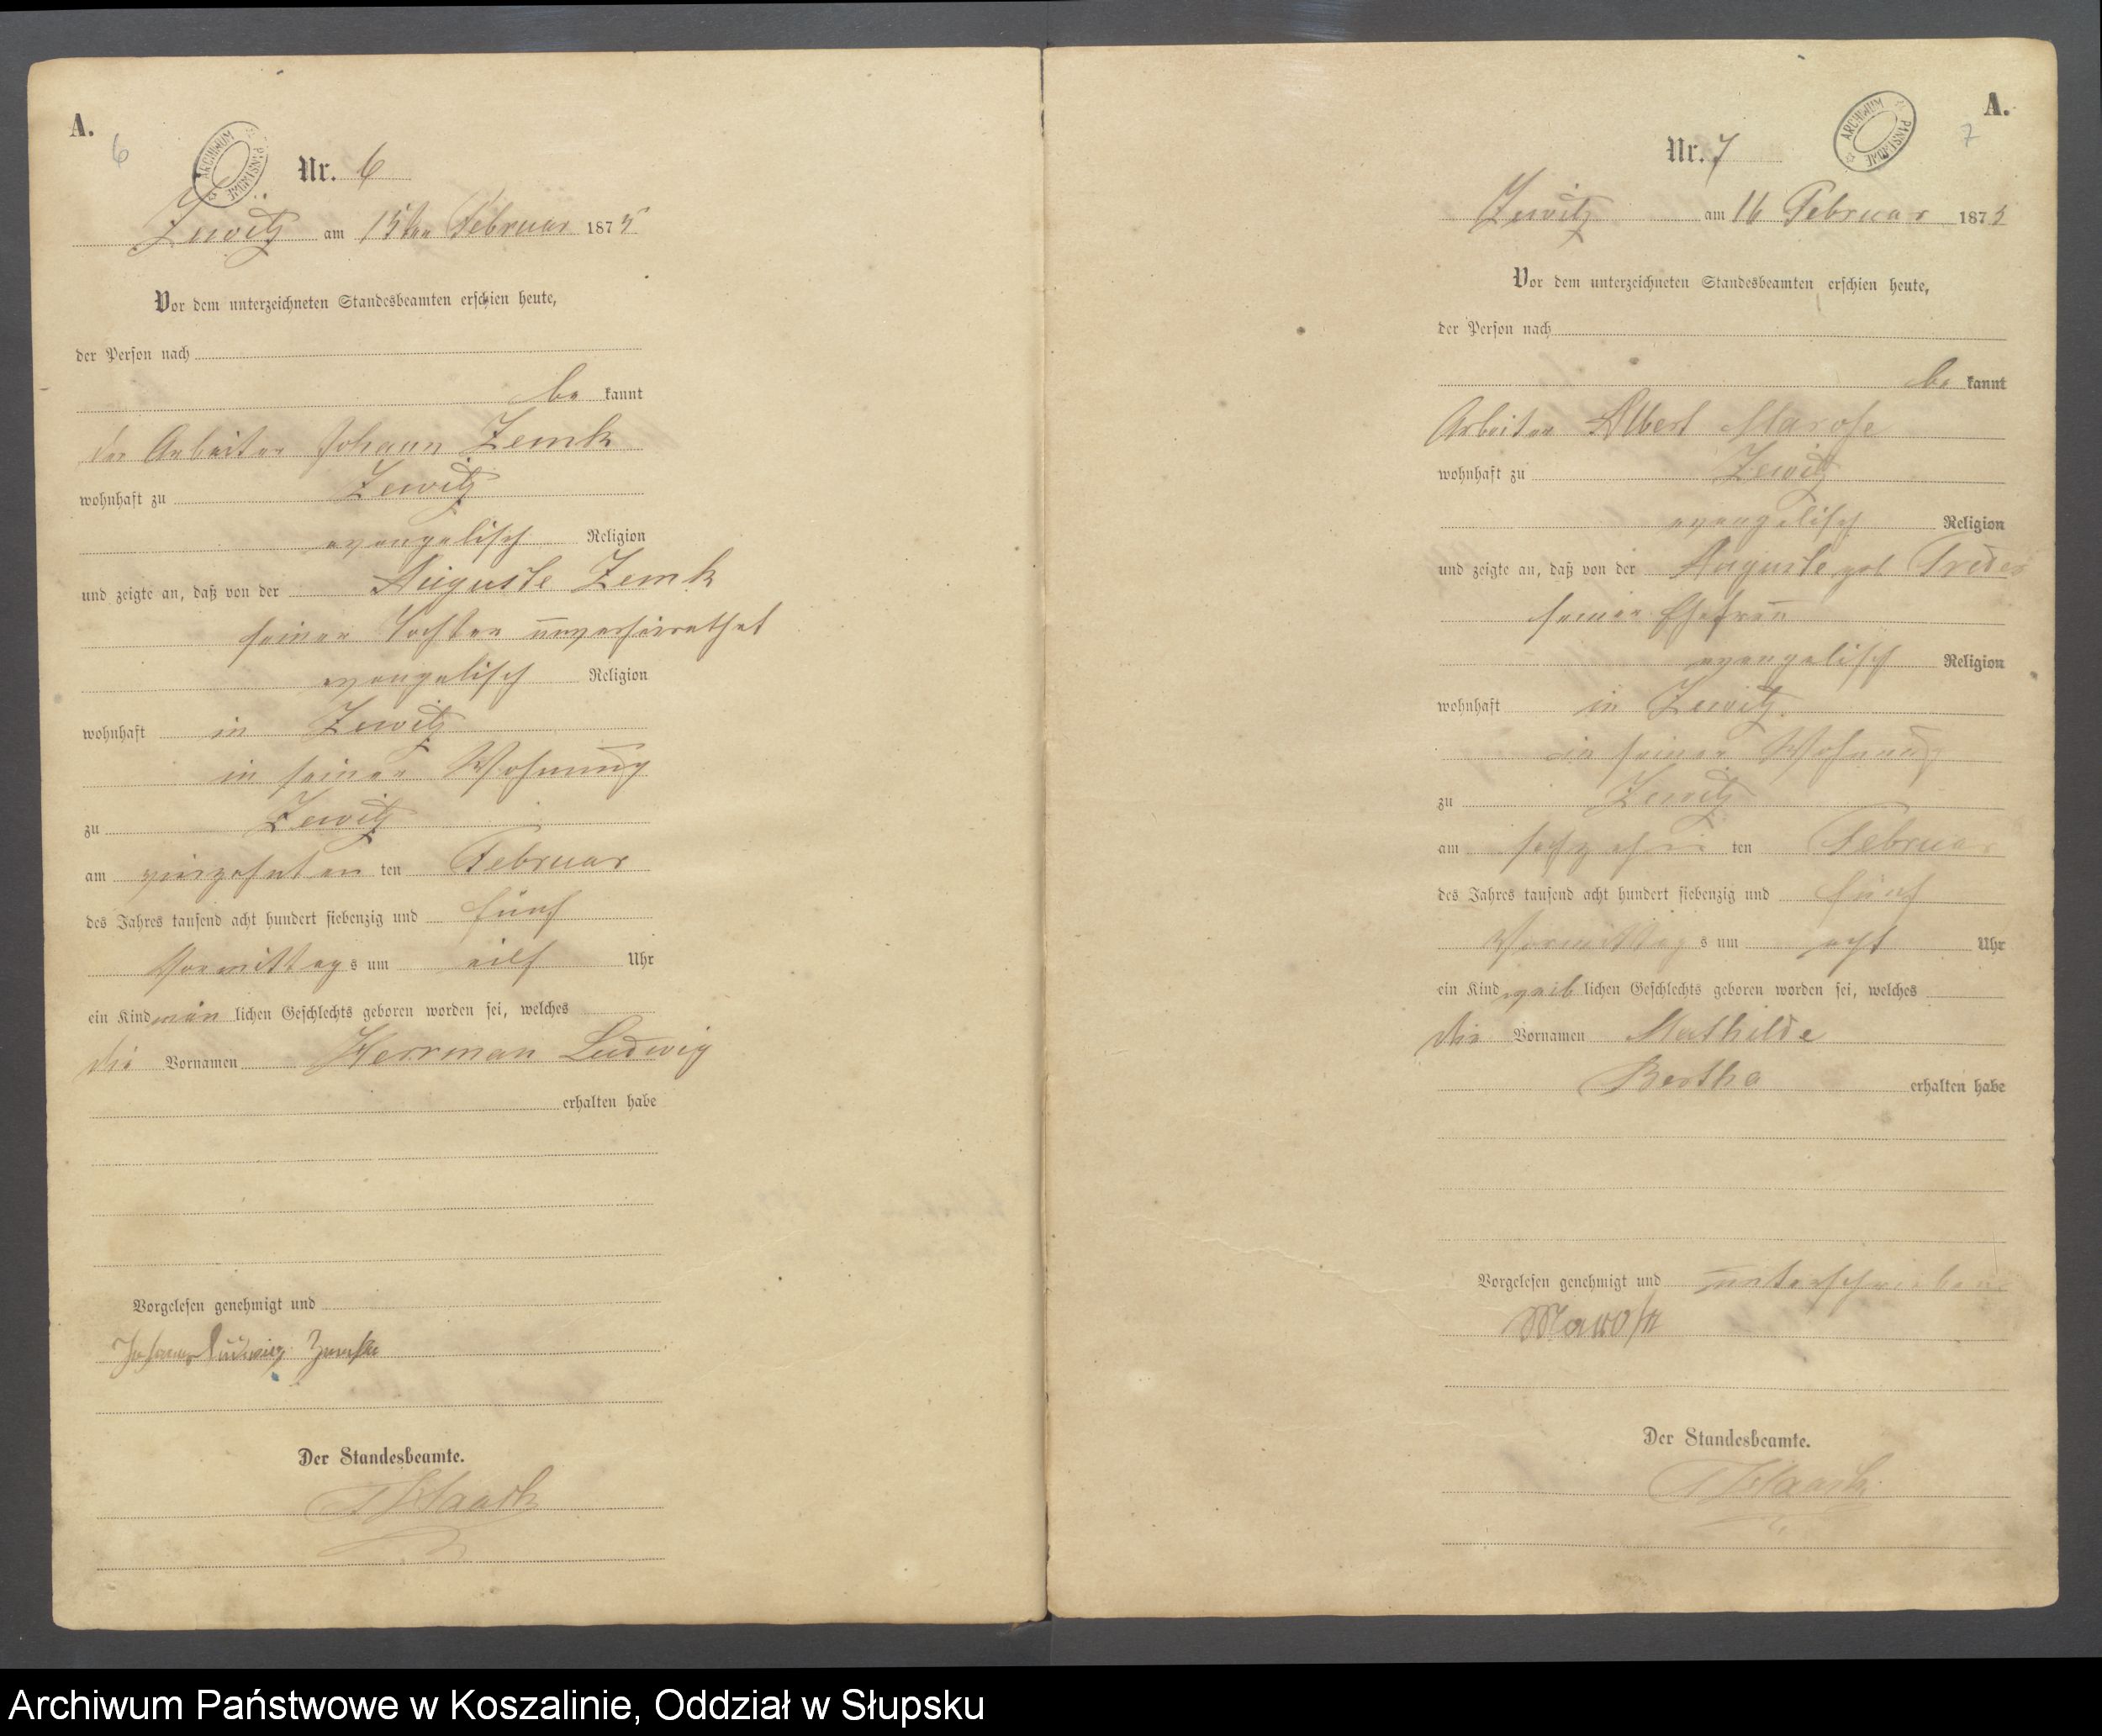 A.
6
ARCHIWUM PAŃSTWOWE
Nr. 6
Zewitz am 15ten Februar 1875
Vor dem unterzeichneten Standesbeamten erschien heute,
der Person nach
be kannt
der Arbeiter Johann Zemk
wohnhaft zu Zewitz
evangelisch Religion
und zeigte an, daß von der Auguste Zemk
seiner Tochter unverheirathet
evangelisch Religion
wohnhaft in Zewitz
in seiner Wohnung
zu Zewitz
am vierzehnten ten Februar
des Jahres tausend acht hundert siebenzig und fünf
Vormittag s um eilf Uhr
ein Kind män lichen Geschlechts geboren worden sei, welches
die Vornamen Herrman Ludwig
erhalten habe
Vorgelesen genehmigt und
Johann Ludwig Zemke
Der Standesbeamte.
A.
7
ARCHIWUM PAŃSTWOWE
Nr. 7
Zewitz am 16 Februar 1875
Vor dem unterzeichneten Standesbeamten erschien heute,
der Person nach
be kannt
Arbeiter Albert Marose
wohnhaft zu Zewitz
evangelisch Religion
und zeigte an, daß von der Auguste geb
seiner Ehefrau
evangelisch Religion
wohnhaft in Zewitz
in seiner Wohnung
zu Zewitz
am sechzehn ten Februar
des Jahres tausend acht hundert siebenzig und fünf
Vormittag s um acht Uhr
ein Kind weib lichen Geschlechts geboren worden sei, welches
die Vornamen Mathilde
Bertha erhalten habe
Vorgelesen genehmigt und unterschrieben
Marose
Der Standesbeamte.
Archiwum Państwowe w Koszalinie, Oddział w Słupsku